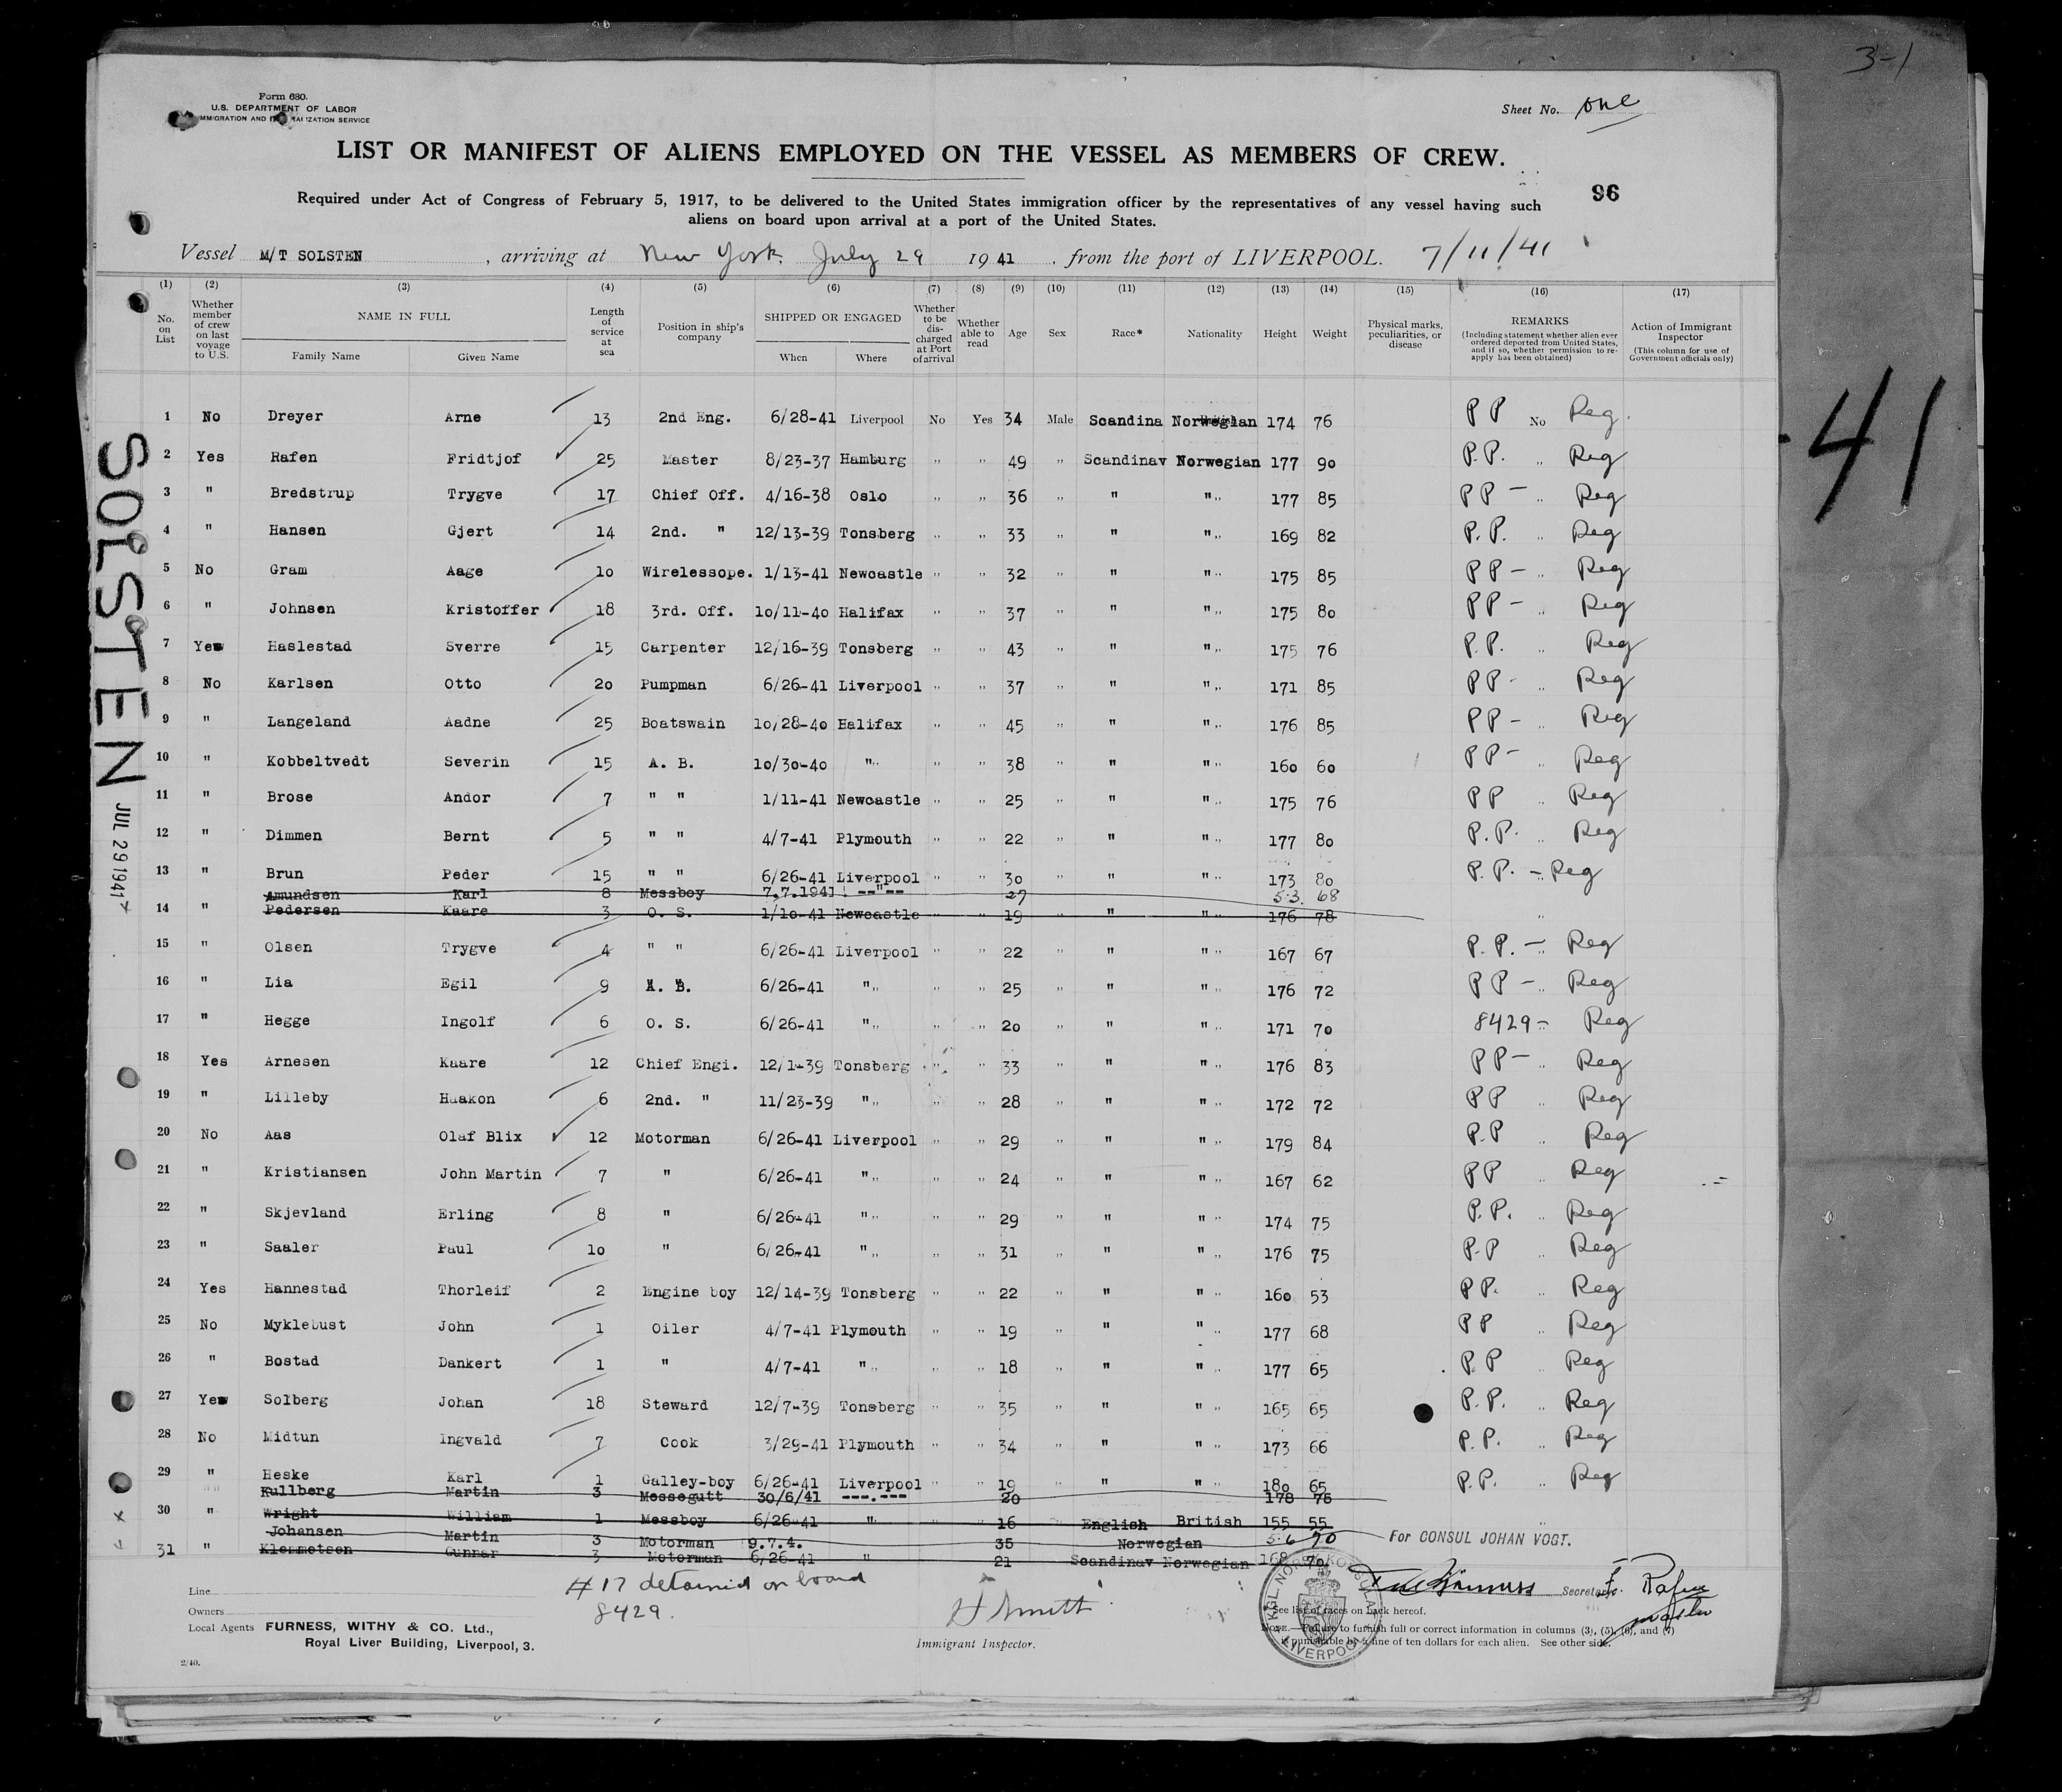 3-1
Form 680.
U.S. DEPARTMENT OF LABOR
IMMIGRATION AND NATURALIZATION SERVICE
Sheet No. one
LIST OR MANIFEST OF ALIENS EMPLOYED ON THE VESSEL AS MEMBERS OF CREW.
96
Required under Act of Congress of February 5, 1917, to be delivered to the United States immigration officer by the representatives of any vessel having such
aliens on board upon arrival at a port of the United States.
Vessel M/T SOLSTEN , arriving at New York, July 29 1941 , from the port of LIVERPOOL. 7/11/41
(1) (2) (3) (4) (5) (6) (7) (8) (9) (10) (11) (12) (13) (14) (15) (16) (17)
No. on List
Whether member of crew on last voyage to U.S.
NAME IN FULL
Family Name Given Name
Length of service at sea
Position in ship's company
SHIPPED OR ENGAGED
When Where
Whether to be discharged at Port of arrival
Whether able to read
Age Sex Race* Nationality Height Weight
Physical marks, peculiarities, or disease
REMARKS
(Including statement whether alien ever ordered deported from United States, and if so, whether permission to reapply has been obtained)
Action of Immigrant Inspector
(This column for use of Government officials only)
1 No Dreyer Arne 13 2nd Eng. 6/28-41 Liverpool No Yes 34 Male Scandina Norwegian 174 76 PP No Reg.
2 Yes Rafen Fridtjof 25 Master 8/23-37 Hamburg " " 49 " Scandinav Norwegian 177 90 P.P. " Reg
3 " Bredstrup Trygve 17 Chief Off. 4/16-38 Oslo " " 36 " " " " 177 85 PP - " Reg
4 " Hansen Gjert 14 2nd. " 12/13-39 Tonsberg " " 33 " " " " 169 82 P.P. " Reg
5 No Gram Aage 10 Wirelessope. 1/13-41 Newcastle " " 32 " " " " 175 85 PP - " Reg
6 " Johnsen Kristoffer 18 3rd. Off. 10/11-40 Halifax " " 37 " " " " 175 80 PP - " Reg
7 Yes Haslestad Sverre 15 Carpenter 12/16-39 Tonsberg " " 43 " " " " 175 76 P.P. " Reg
8 No Karlsen Otto 20 Pumpman 6/26-41 Liverpool " " 37 " " " " 171 85 PP - " Reg
9 " Langeland Aadne 25 Boatswain 10/28-40 Halifax " " 45 " " " " 176 85 PP - " Reg
10 " Kobbeltvedt Severin 15 A. B. 10/30-40 " " " " 38 " " " " 160 60 PP - " Reg
11 " Brose Andor 7 " " 1/11-41 Newcastle " " 25 " " " " 175 76 PP " Reg
12 " Dimmen Bernt 5 " " 4/7-41 Plymouth " " 22 " " " " 177 80 P.P. " Reg
13 " Brun Peder 15 " " 6/26-41 Liverpool " " 30 " " " " 173 80 P.P. - Reg
Amundsen Karl 8 Messboy 7.7.1941 --"-- 27 5.3. 68
14 " Pedersen Kaare 3 O. S. 1/10-41 Newcastle " " 19 " " " " 176 78 "
15 " Olsen Trygve 4 " " 6/26-41 Liverpool " " 22 " " " " 167 67 P.P. - " Reg
16 " Lia Egil 9 A. B. 6/26-41 " " " " 25 " " " " 176 72 PP - " Reg
17 " Hegge Ingolf 6 O. S. 6/26-41 " " " " 20 " " " " 171 70 8429 - " Reg
18 Yes Arnesen Kaare 12 Chief Engi. 12/1-39 Tonsberg " " 33 " " " " 176 83 PP - " Reg
19 " Lilleby Haakon 6 2nd. " 11/23-39 " " " " 28 " " " " 172 72 PP " Reg
20 No Aas Olaf Blix 12 Motorman 6/26-41 Liverpool " " 29 " " " " 179 84 P.P " Reg
21 " Kristiansen John Martin 7 " 6/26-41 " " " " 24 " " " " 167 62 PP " Reg
22 " Skjevland Erling 8 " 6/26-41 " " " " 29 " " " " 174 75 P.P. " Reg
23 " Saaler Paul 10 " 6/26-41 " " " " 31 " " " " 176 75 P.P " Reg
24 Yes Hannestad Thorleif 2 Engine boy 12/14-39 Tonsberg " " 22 " " " " 160 53 PP. " Reg
25 No Myklebust John 1 Oiler 4/7-41 Plymouth " " 19 " " " " 177 68 PP " Reg
26 " Bostad Dankert 1 " 4/7-41 " " " " 18 " " " " 177 65 P.P " Reg
27 Yes Solberg Johan 18 Steward 12/7-39 Tonsberg " " 35 " " " " 165 65 P.P. " Reg
28 No Midtun Ingvald 7 Cook 3/29-41 Plymouth " " 34 " " " " 173 66 P.P. " Reg
29 " Heske Karl 1 Galley-boy 6/26-41 Liverpool " " 19 " " " " 180 65 P.P. " Reg
" Kullberg Martin 3 Messegutt 30/6/41 ---.--- 20 178 76
30 " Wright William 1 Messboy 6/26-41 " " " 16 " English British 155 55 "
Johansen Martin 3 Motorman 9.7.4. 35 Norwegian 5.6 70
For CONSUL JOHAN VOGT.
31 " Klemmetsen Gunnar 3 Motorman 6/26-41 " 21 Scandinav Norwegian 168 70
SOLSTEN
JUL 29 1941
41
# 17 detained on board
8429.
Line
Owners
Local Agents FURNESS, WITHY & CO. Ltd.,
Royal Liver Building, Liverpool, 3.
2/40.
H Smith
Immigrant Inspector.
Secretary.
F. Rafen
master
*See list of races on back hereof.
NOTE.—Failure to furnish full or correct information in columns (3), (5), (6), and (7)
is punishable by a fine of ten dollars for each alien. See other side.
KGL. NORSK KONSULAT
LIVERPOOL